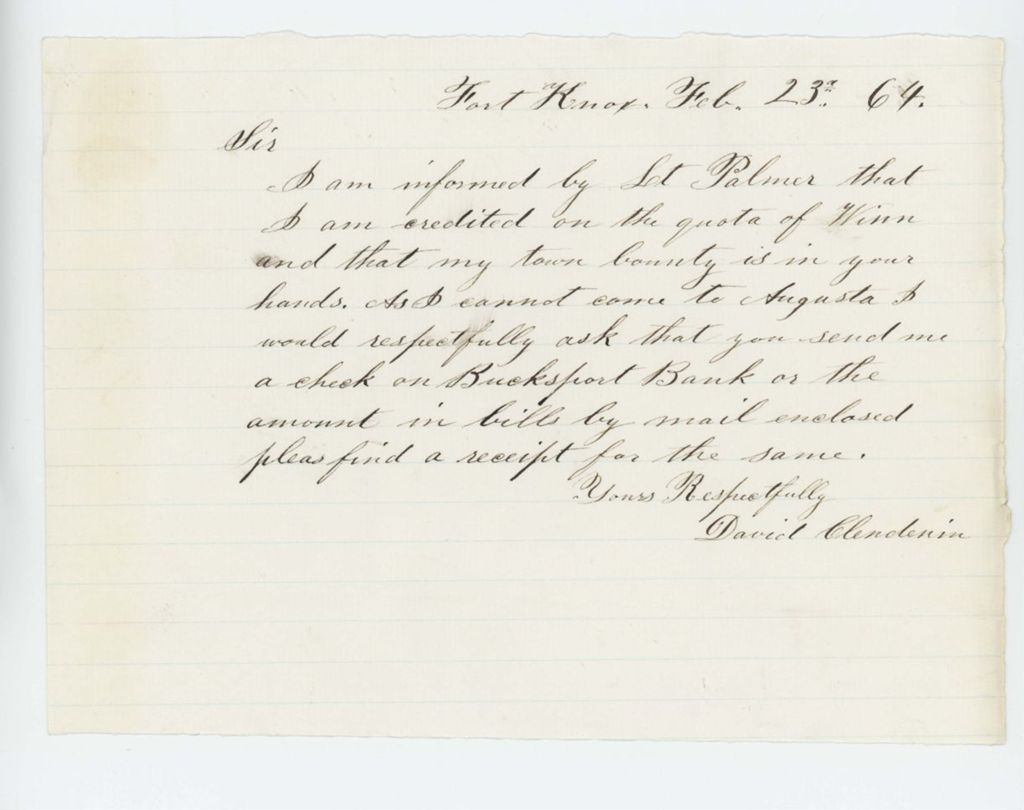 Fort Knox. Feb. 23d. 64.
Sir
I am informed by Lt Palmer that
I am credited on the quota of Winn
and that my town bounty is in your
hands. As I cannot come to Augusta I
would respectfully ask that you send me
a check on Bucksport Bank or the
amount in bills by mail enclosed
pleas find a receipt for the same.
Yours Respectfully
David Clendenin